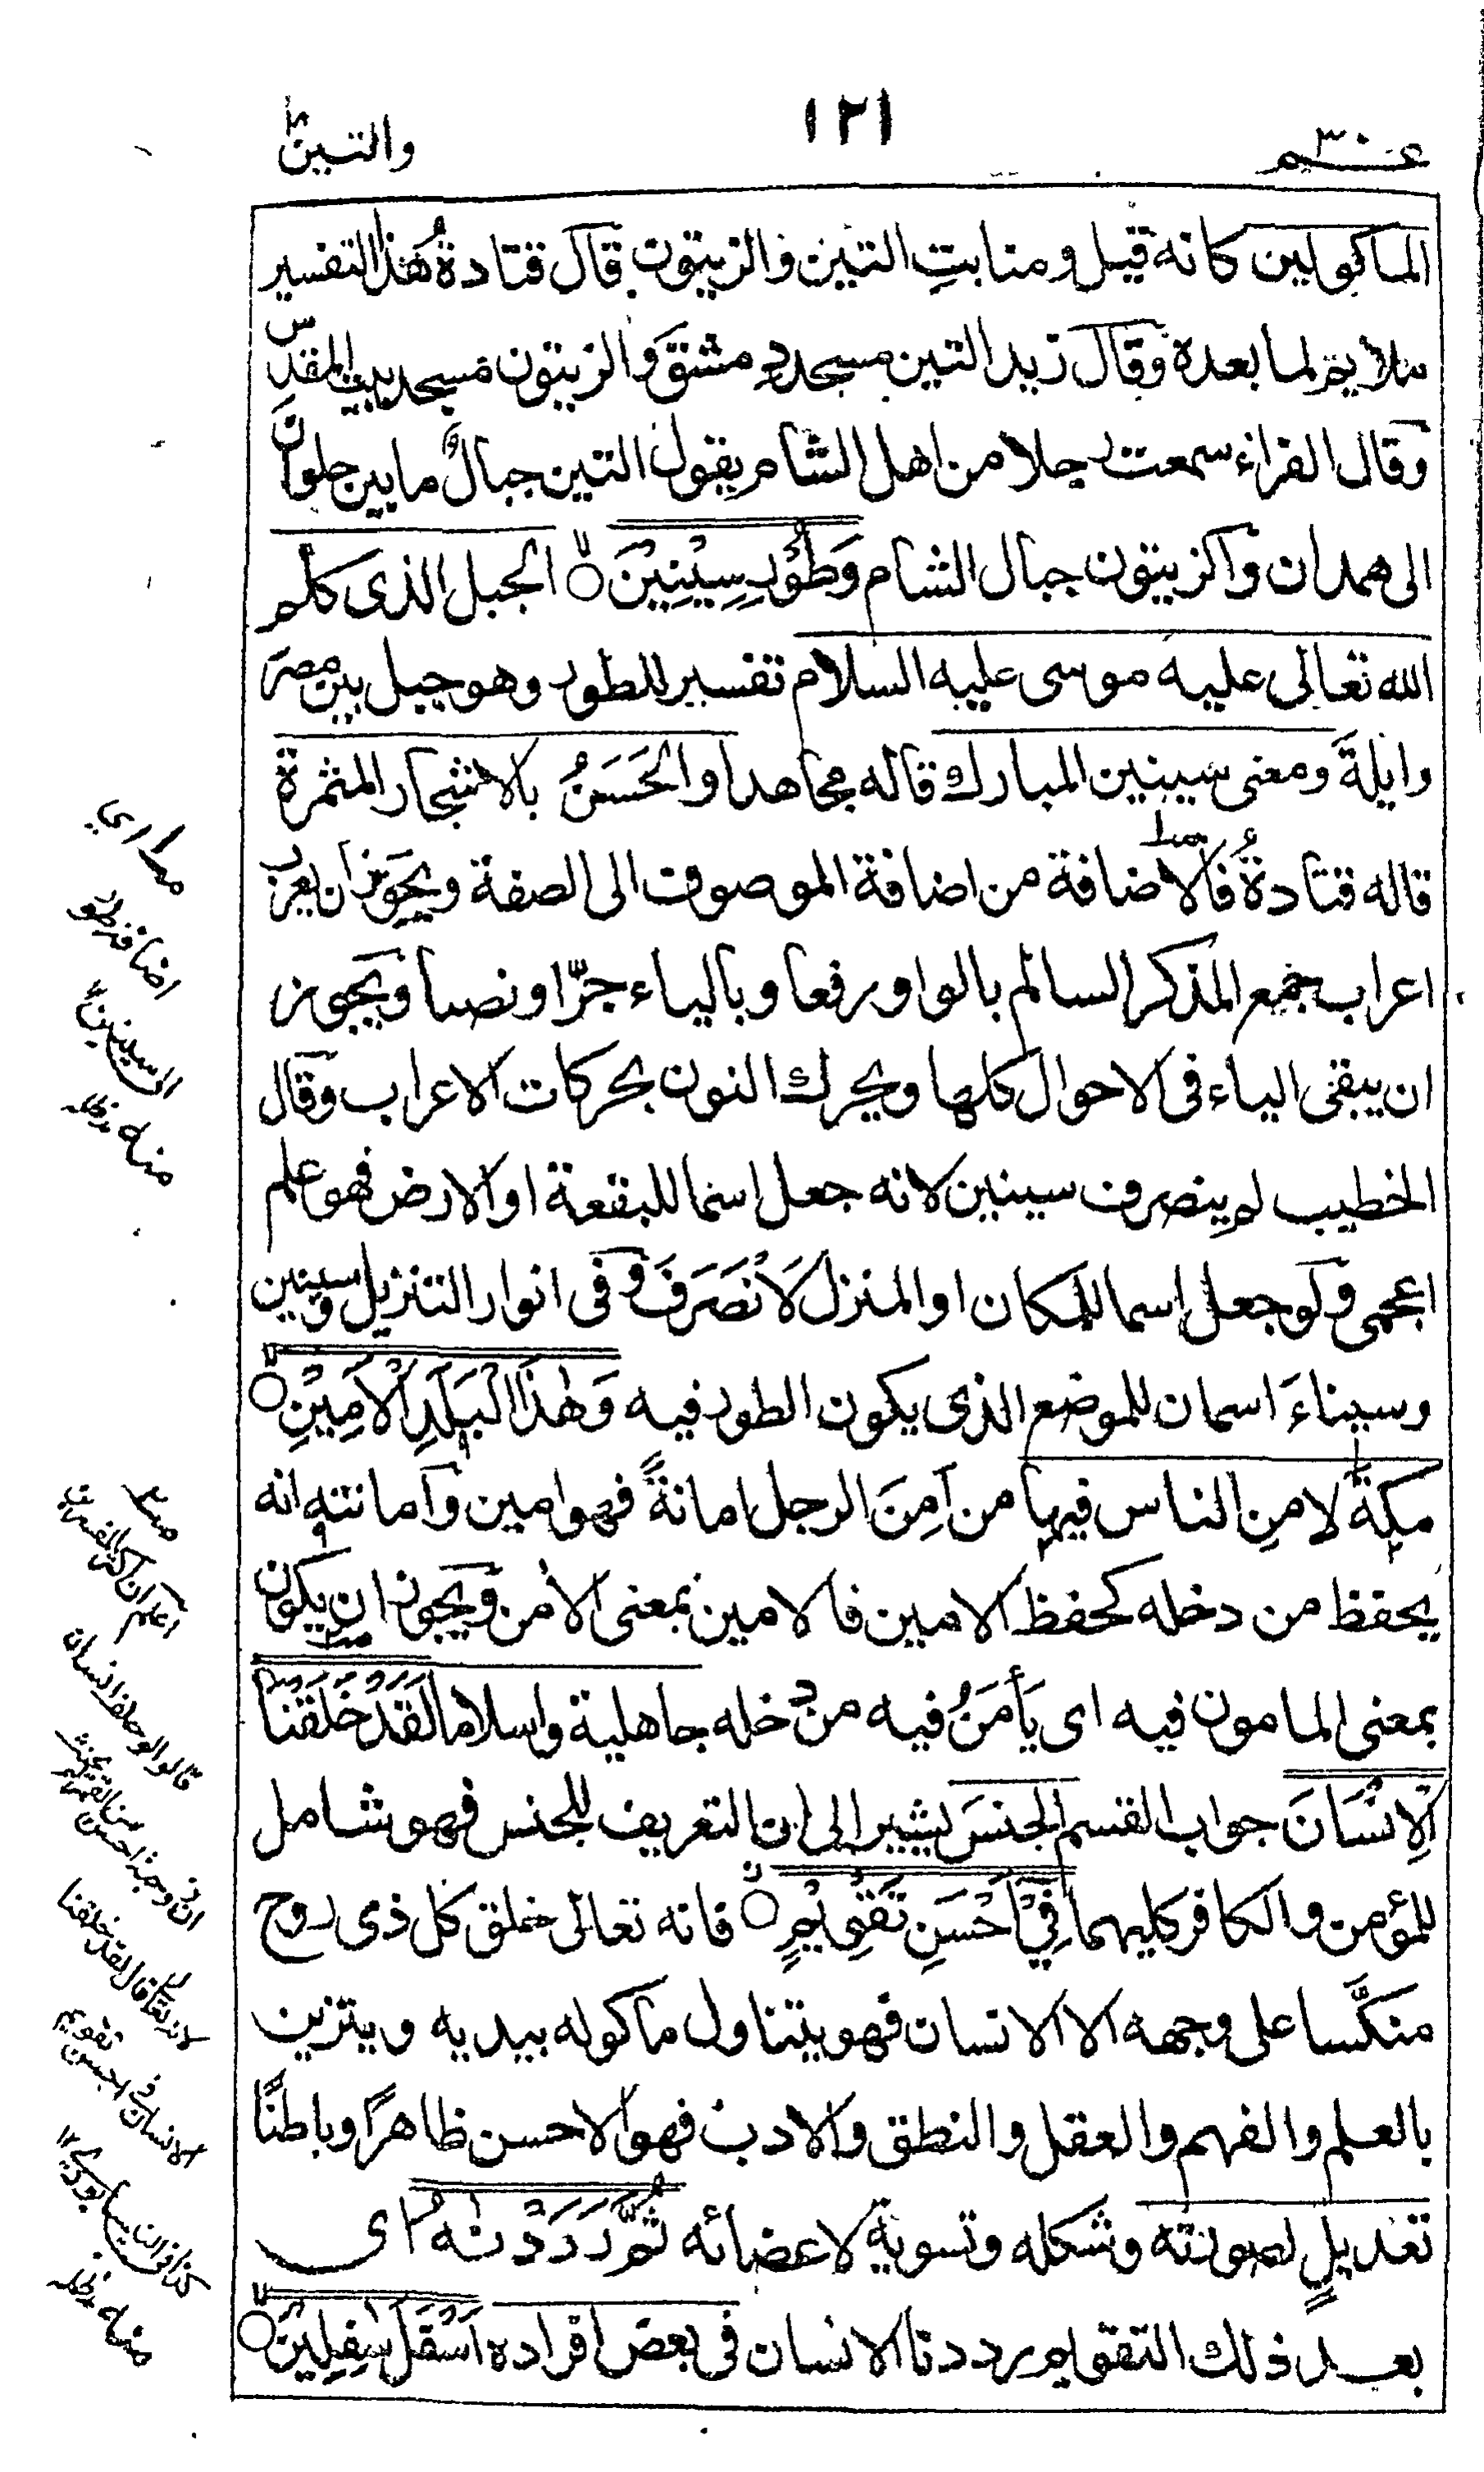 عم ٣٠
١٢١
والتين
الماكولين كانه قيل ومنابتِ التين والزيتون قال قتادةُ هذا التفسير
ملايم لما بعده وقال زيد التين مسجد دمشق والزيتون مسجد بيت المقدس
وقال الفراء سمعت رجلا من اهل الشام يقول التين جبالٌ ما بين حلوان
الى همدان والزيتون جبال الشام وَطُوْرِ سِيْنِيْنَ الجبل الذى كلم
الله تعالى عليه موسى عليه السلام تفسير للطور وهو جبل بين مصر
وايلةَ ومعنى سينين المبارك قاله مجاهد او الحَسَنُ بالاشجار المثمرة
قاله قتادةُ فالاضافة من اضافة الموصوف الى الصفة ويجوز ان يعرب
اعراب جمع المذكر السالم بالواو رفعا وبالياء جرّا ونصبا ويجوز
ان يبقى الياء فى الاحوال كلها ويحرك النون بحركات الاعراب وقال
الخطيب لم ينصرف سينين لانه جعل اسما للبقعة او الارض فهو علم
اعجمى ولو جعل اسما للمكان او المنزل لَانْصَرَفَ وفى انوار التنزيل وسينين
وسيناءَ اسمان للموضع الذى يكون الطور فيه وَهٰذَا الْبَلَدِ الْاَمِيْنِ
مكةَ لامنِ الناس فيها من اَمِنَ الرجل امانةً فهو امين وامانته انه
يحفظ من دخله كحفظ الامين فالامين بمعنى الأمن ويجوز ان يكون
بمعنى المامون فيه اى يَأمَنُ فيه من دخله جاهلية واسلاما لَقَدْ خَلَقْنَا
الْاِنْسَانَ جواب القسم الجنسَ يشير الى ان التعريف للجنس فهو شامل
للمؤمن والكافر كليهما فِيْٓ اَحْسَنِ تَقْوِيْمٍ فانه تعالى خلق كل ذى روح
منكَّسا على وجهه الا الانسان فهو يتناول ماكوله بيديه ويتزين
بالعلم والفهم والعقل والنطق والادب فهو الاحسن ظاهرًا وباطنًا
تعديلٍ لصورته وشكله وتسويةٍ لاعضائه ثُمَّ رَدَدْنٰهُ اى
بعد ذلك التقويم رددنا الانسان فى بعض افراده اَسْفَلَ سٰفِلِيْنَ
اى
اضافة طور
الى سينين
منه مدظله
اعلم ان اكثر المفسرين
قالوا لو حلف انسان
لانه تعالى قال لقد خلقنا
الانسان فى احسن تقويم
منه مدظله